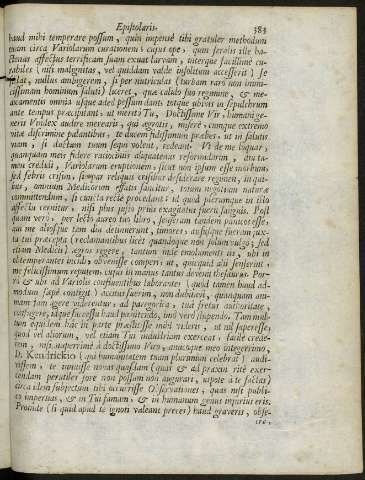 Epistolaris. 383
haud mihi temperare possum, quin impensè tibi gratuler methodum
tuam circa Variolarum curationem; cujus ope, quin feralis ille hac-
tenus affectus terrificam suam exuat larvam, interque facillimè cu-
rabiles (nisi malignitas, vel quiddam valdè insolitum accesserit) se
sistat, nullus ambigerem, si per nutriculas (turbam rarò non inimi-
cissimam hominum saluti) liceret, quæ calido suo regimine, & me-
dicamentis omnia usque adeò possum dant, totque ubivis in sepulchrum
ante tempus præcipitant, ut meritò Tu, Doctissime Vir, humani ge-
neris Vindex audire merearis, qui ægrotis, miserè, cumque extremo
vitæ discrimine palantibus, te ducem fidissimum præbes, ut in salutis
viam, si ductum tuum sequi volent, redeant. Ut de me loquar,
quanquam meis fidere ratiociniis aliquatenus reformidarim, diu ta-
men credidi, Variolarum eruptionem, sicut non ipsum esse morbum,
sed febris crisin, semper reliquas crisibus desiderare regimen, in qui-
bus, omnium Medicorum effatis sancitur, totum negotium naturæ
committendum, si cuncta rectè procedant: id quod plerumque in illo
affectu cernitur, nisi plus justo prius exagitatus fuerit sanguis. Post
quam verò, per lecto aureo tuo libro, seposeram tandem panicos esse,
qui me aliosque tam diu detinuerunt, timores, aususque fuerim jux-
ta tua præcepta (reclamantibus licet quandoque non solùm vulgò, sed
etiam Medicis) ægros regere, tantùm inde emolumenti iis, ubi in
obtemperantes incidi, obvenisse comperi: ut, quicquid alii senserint,
me felicissimum reputem, cujus in manus tantus devenit thesaurus. Por-
rò & ubi ad Variolis confluentibus laborantes (quod tamen haud ad-
modum sæpè contigit) accitus fuerim, non dubitavi, quanquam ani-
mam jam agere viderentur, ad paregorica, tuâ fretus autoritate,
confugere, idque successu haud pœnitendo, imò verò stupendo. Tam mul-
tum equidem hâc in parte præstitisse mihi videris, ut nil superesse,
quod vel aliorum, vel etiam Tui industriam exerceat, facile crede-
rem, nisi nuperrimè à doctissimo Viro, amicoque meo integerrimo,
D. Kendrickio (qui humanitatem tuam plurimùm celebrat) audi-
vissem, te nonnisse novas quasdam (quas & ad praxin ritè exer-
cendam perutiles fore non possum non augurari, utpote à te factas)
circa idem subjectum tibi occurrisse Observationes, quas nisi publi-
co impertias, & in Tui famam, & in humanum genus injurius eris.
Proinde (si quid apud te ignoti valeant preces) haud graveris, obse-
cro,